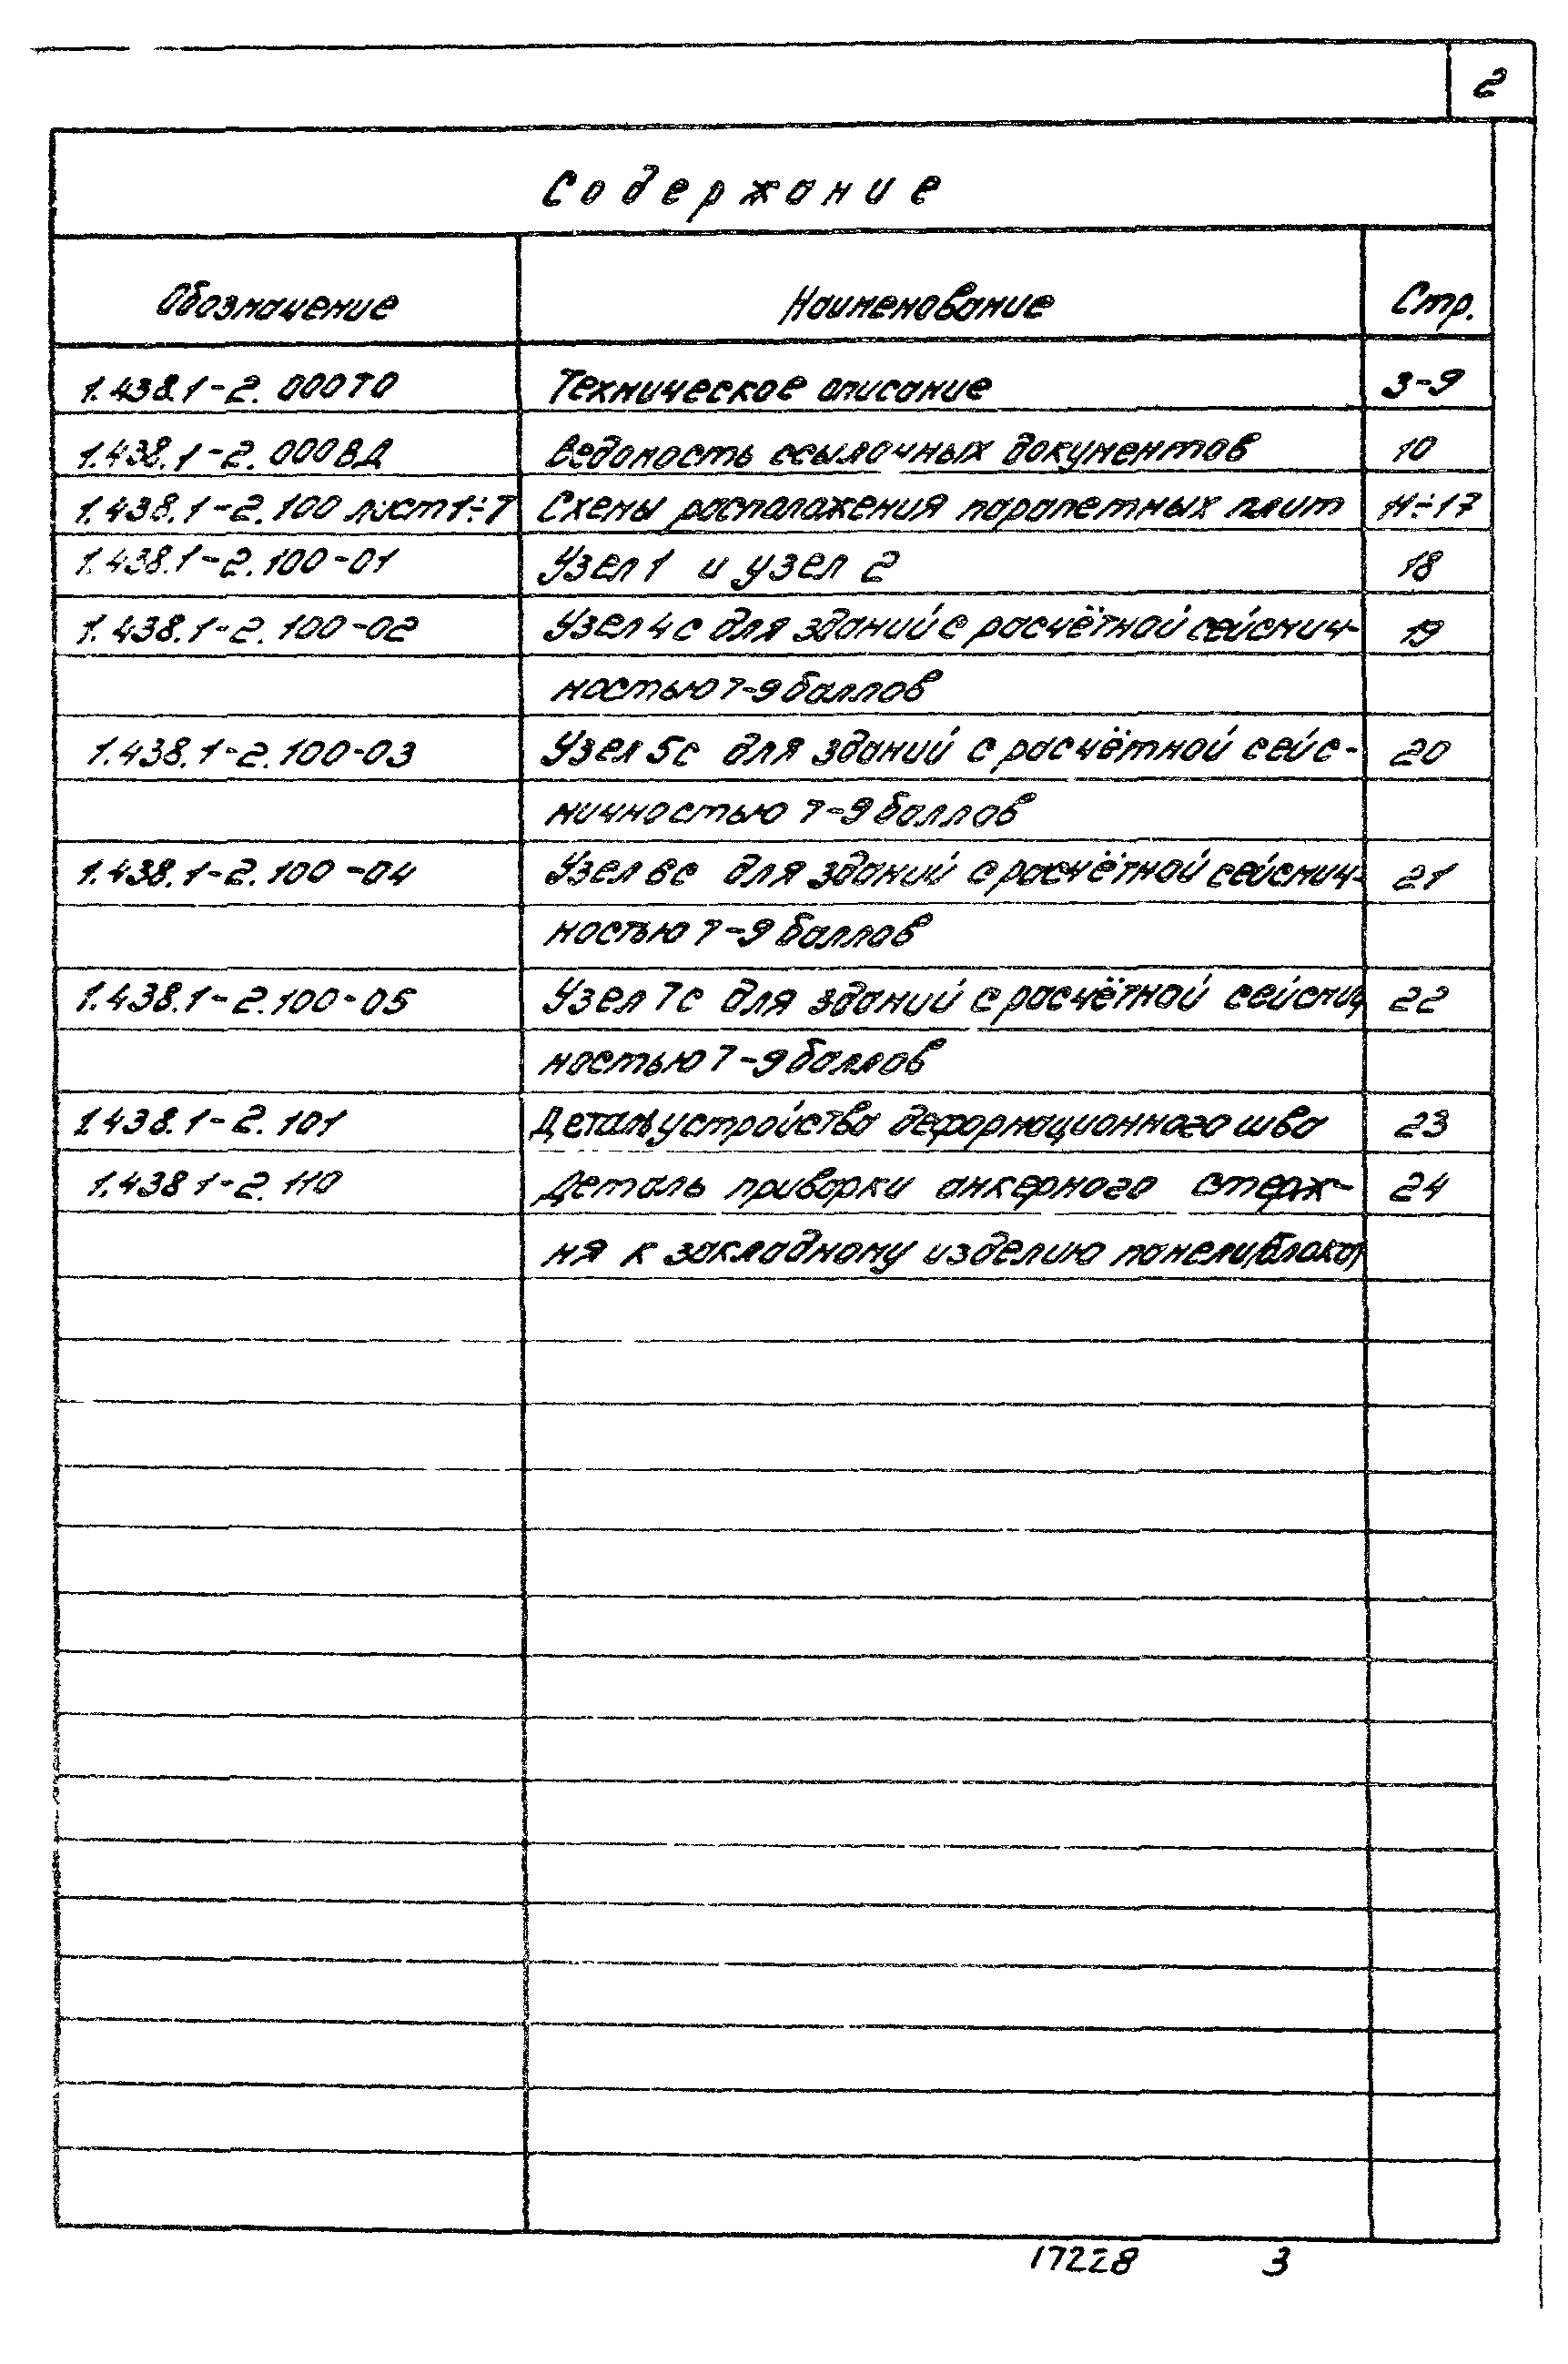 2
Содержание
Обозначение Наименование Стр.
1.438.1-2.000ТО Техническое описание 3-9
1.438.1-2.000ВД Ведомость ссылочных документов 10
1.438.1-2.100 лист1÷7 Схемы расположения парапетных плит 11÷17
1.438.1-2.100-01 Узел 1 и узел 2 18
1.438.1-2.100-02 Узел 4с для зданий с расчётной сейсмич- 19
ностью 7-9 баллов
1.438.1-2.100-03 Узел 5с для зданий с расчётной сейс- 20
мичностью 7-9 баллов
1.438.1-2.100-04 Узел 6с для зданий с расчётной сейсмич- 21
ностью 7-9 баллов
1.438.1-2.100-05 Узел 7с для зданий с расчётной сейсмич 22
ностью 7-9 баллов
1.438.1-2.101 Деталь устройства деформационного шва 23
1.438 1-2.110 Деталь приварки анкерного стерж- 24
ня к закладному изделию панели(блока)
17228 3